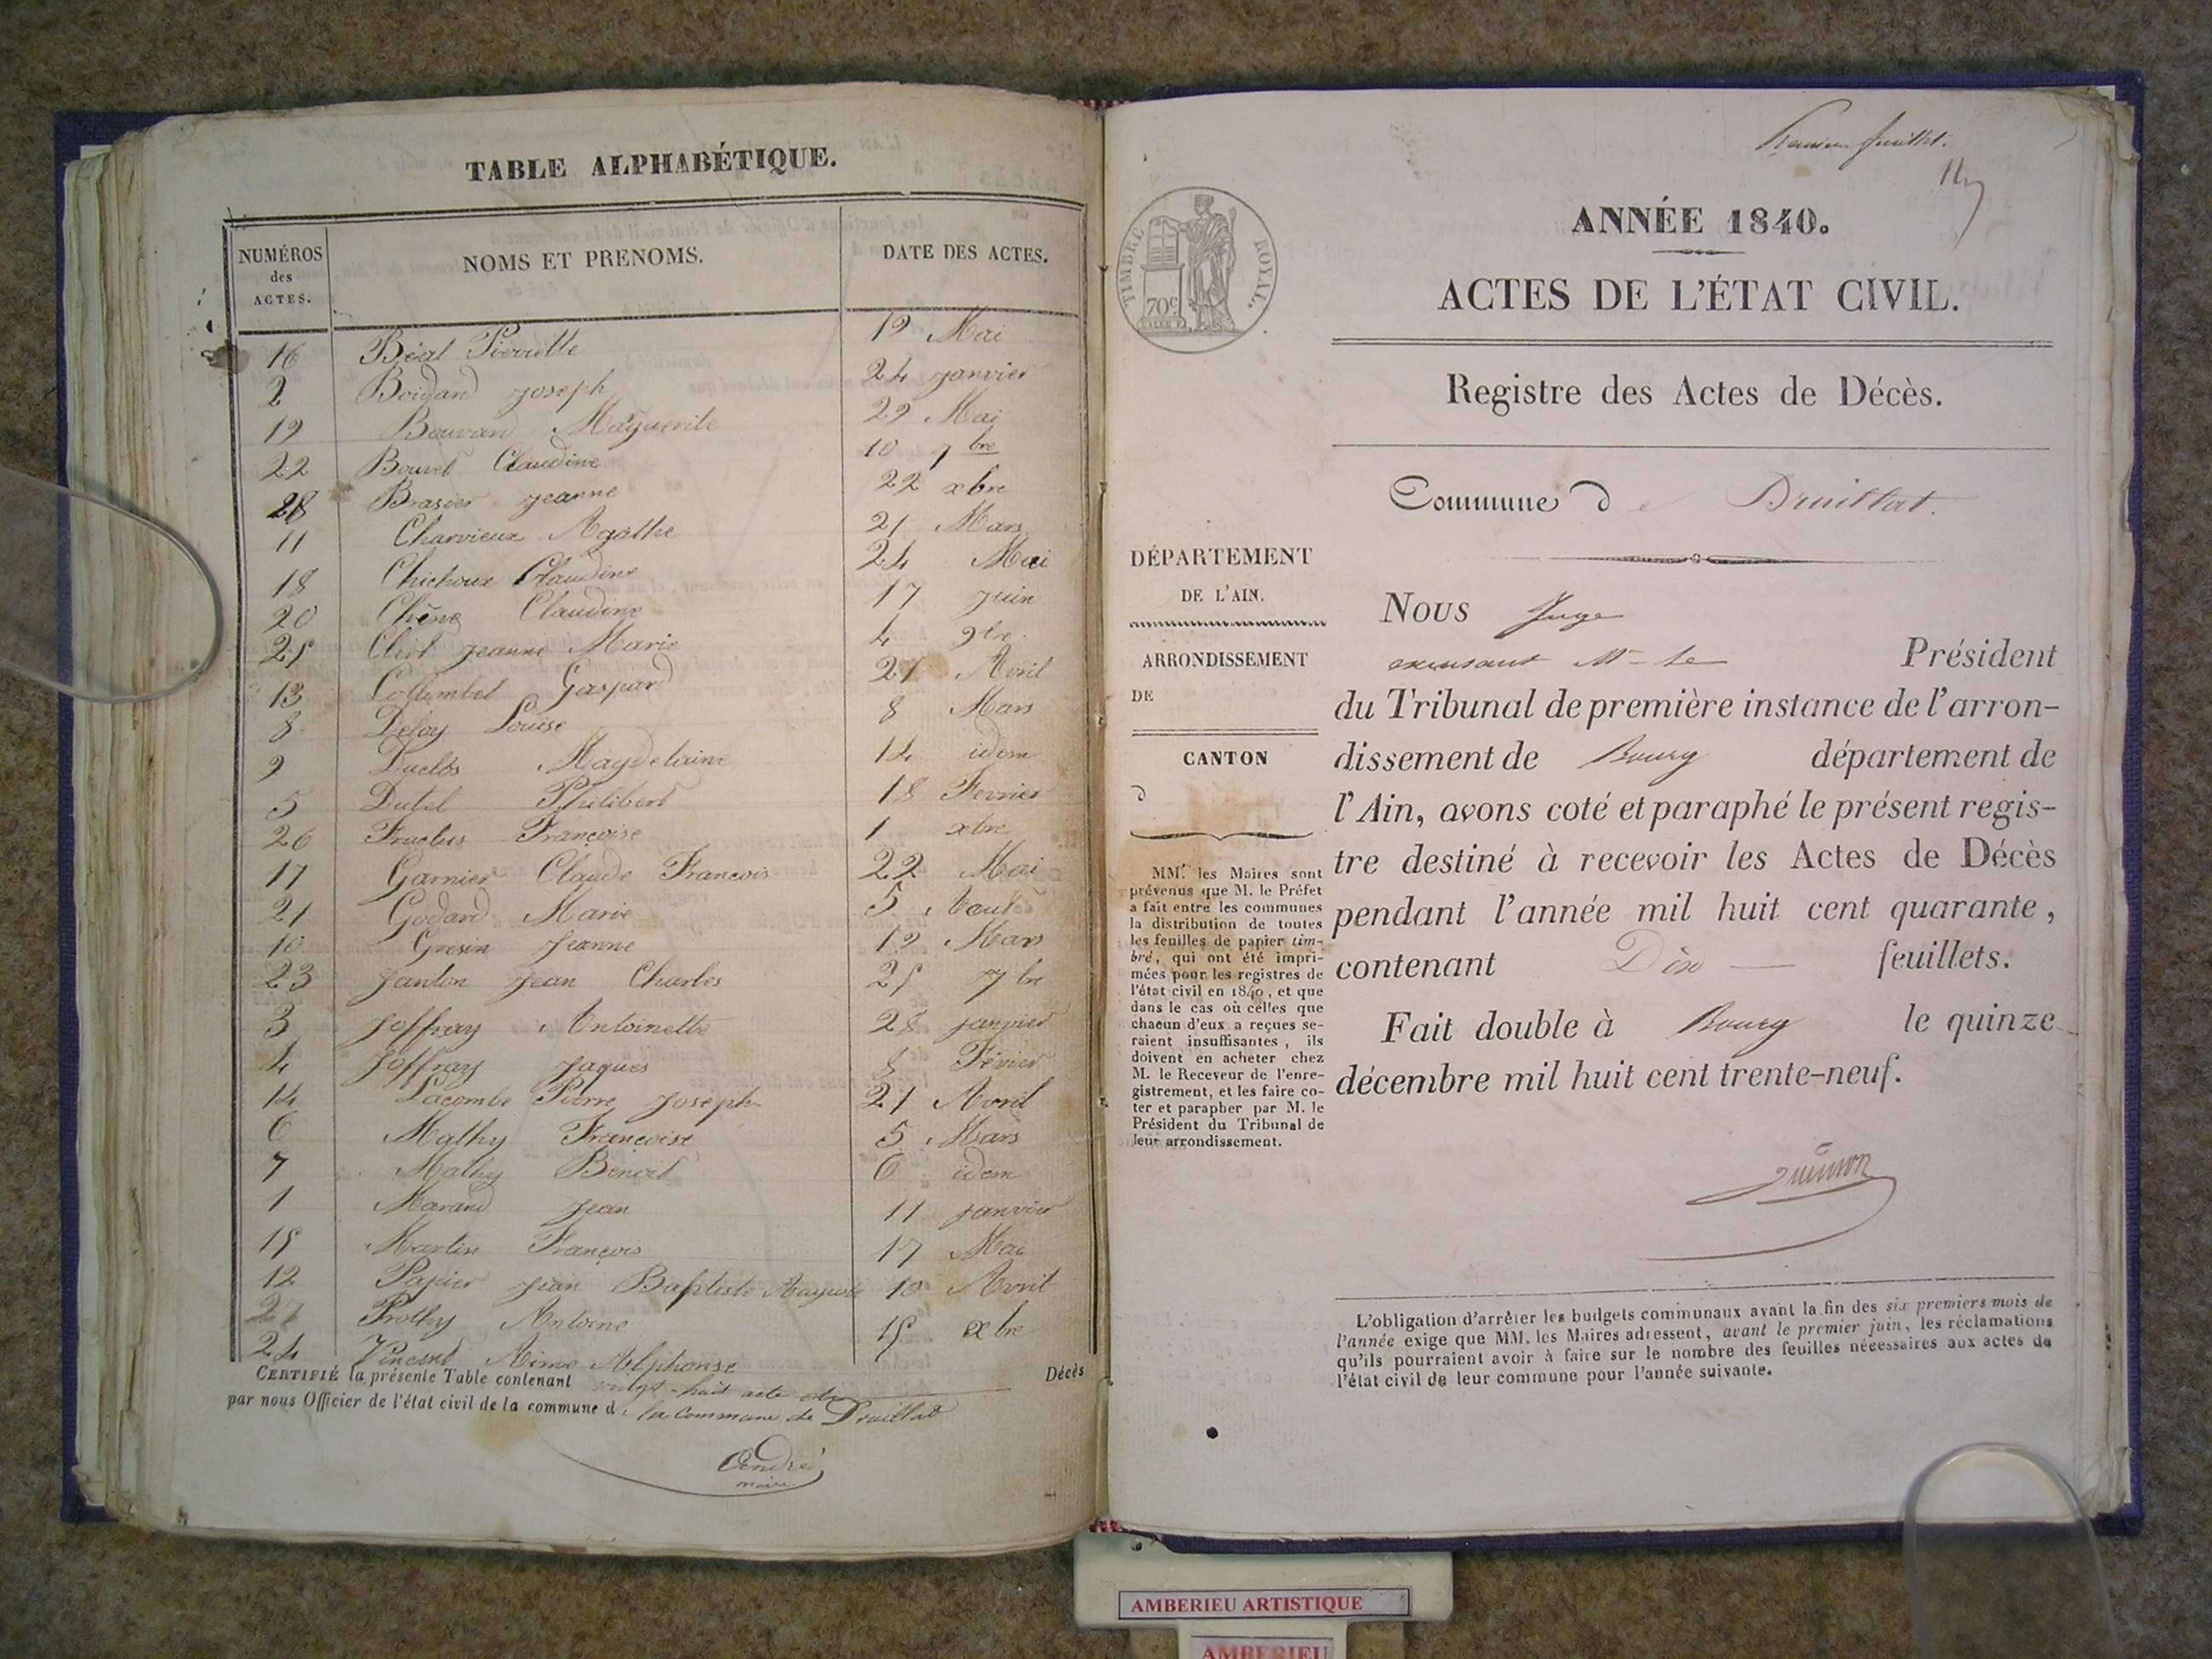 TABLE ALPHABÉTIQUE.
NUMÉROS des ACTES. NOMS ET PRENOMS. DATE DES ACTES.
16 Béal Pierrette 19 Mai
2 Boidard joseph 24 janvier
19 Bouvard Maguerite 29 Mai
22 Bouvet Claudine 10 7bre
28 Brasier jeanne 22 xbre
11 Charvieux Agathe 21 Mars
18 Chichoux Claudine 24 Mai
20 Chêne Claudine 17 juin
25 jeanne Marie 4 9bre
13 Collumbet Gaspard 21 Avril
8 Deloy Louise 8 Mars
9 Duclos Magdelaine 14 idem
5 Dutel Philibert 18 Fevrier
26 Fructus Françoise 1 xbre
17 Garnier Claude François 22 Mai
21 Godard Marie 5 Aout
10 Gresin Jeanne 19 Mars
23 Janton jean Charles 25 7bre
3 Joffray Antoinette 28 janvier
4 Joffray Jaques Févier
14 Lacombe Pierre joseph 21 Avril
6 Mathy Françoise 5 Mars
7 Mathy Benoit 6 idem
1 Marand Jean 11 janvier
15 Martin François 17 Mai
12 Papier jean Baptiste Auguste 10 Avril
27 Prothy Antoine 15 xbre
24 Vincent Aimé Alphonse
CERTIFIÉ la présente Table contenant vingt-huit acte de Décès
par nous Officier de l'état civil de la commune d la commune de Druillat
André
maire
Premier feuillet.
ANNÉE 1840.
TIMBRE ROYAL.
70c
ACTES DE L'ÉTAT CIVIL.
Registre des Actes de Décès.
Commune de Druillat.
DÉPARTEMENT
DE L'AIN.
ARRONDISSEMENT
DE
CANTON
d
MM. les Maires sont
prévenus que M. le Préfet
a fait entre les communes
la distribution de toutes
les feuilles de papier tim-
bré, qui ont été impri-
mées pour les registres de
l'état civil en 1840, et que
dans le cas où celles que
chacun d'eux a reçues se-
raient insuffisantes, ils
doivent en acheter chez
M. le Receveur de l'enre-
gistrement, et les faire co-
ter et parapher par M. le
Président du Tribunal de
leur arrondissement.
Nous Juge
excusant Mr le Président
du Tribunal de première instance de l'arron-
dissement de Bourg département de
l'Ain, avons coté et paraphé le présent regis-
tre destiné à recevoir les Actes de Décès
pendant l'année mil huit cent quarante,
contenant Dix feuillets.
Fait double à Bourg le quinze
décembre mil huit cent trente-neuf.
L'obligation d'arrêter les budgets communaux avant la fin des six premiers mois de
l'année exige que MM. les Maires adressent, avant le premier juin, les réclamations
qu'ils pourraient avoir à faire sur le nombre des feuilles nécessaires aux actes de
l'état civil de leur commune pour l'année suivante.
AMBERIEU ARTISTIQUE
AMBERIEU